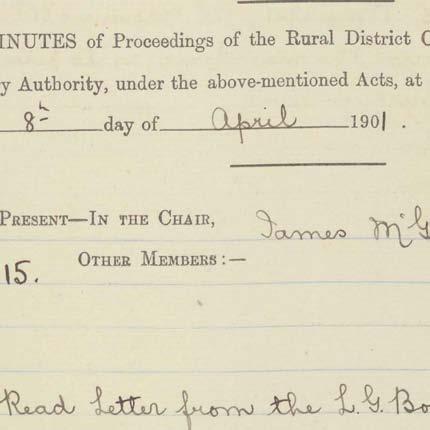 INUTES of Proceedings of the Rural District C
y Authority, under the above-mentioned Acts, at
8th day of April 1901.
PRESENT—IN THE CHAIR, James McG
15. OTHER MEMBERS:—
Read Letter from the L.G. Bo